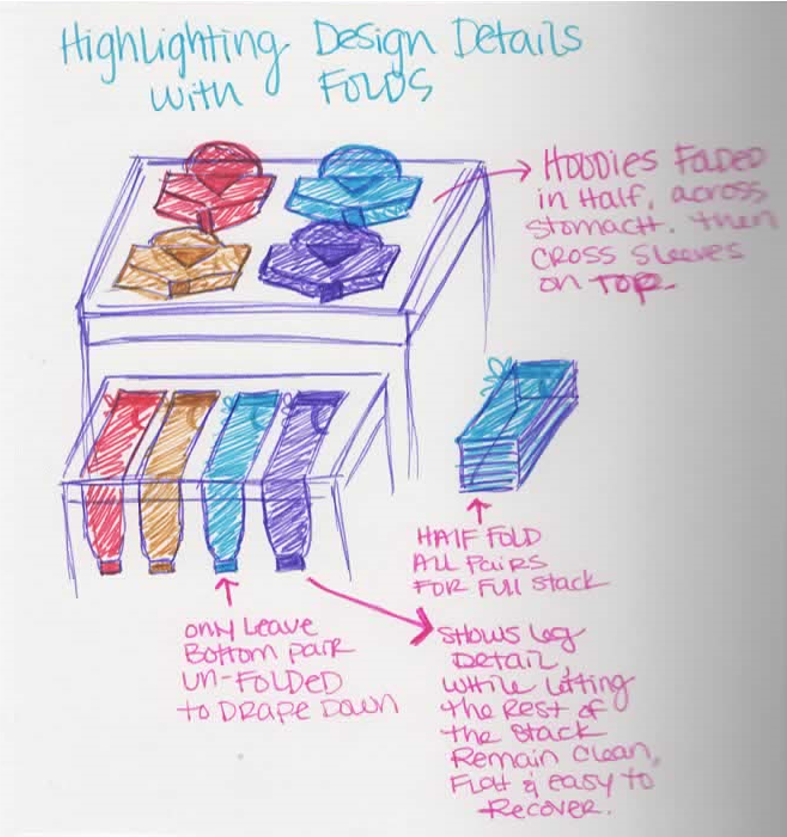 Highlighting Design Details
with FOLDS
Hoodies Faded
in Half, across
stomach. then
CROSS Sleeves
on TOP.
HAlF FOLD
ALL PaiRS
FOR FUll Stack
only Leave
Bottom paiR
UN-FOLDeD
to DRape Down
SHOWS Leg
Detail,
WHile Letting
the Rest of
the Stack
Remain Clean,
Flat & easy to
Recover.